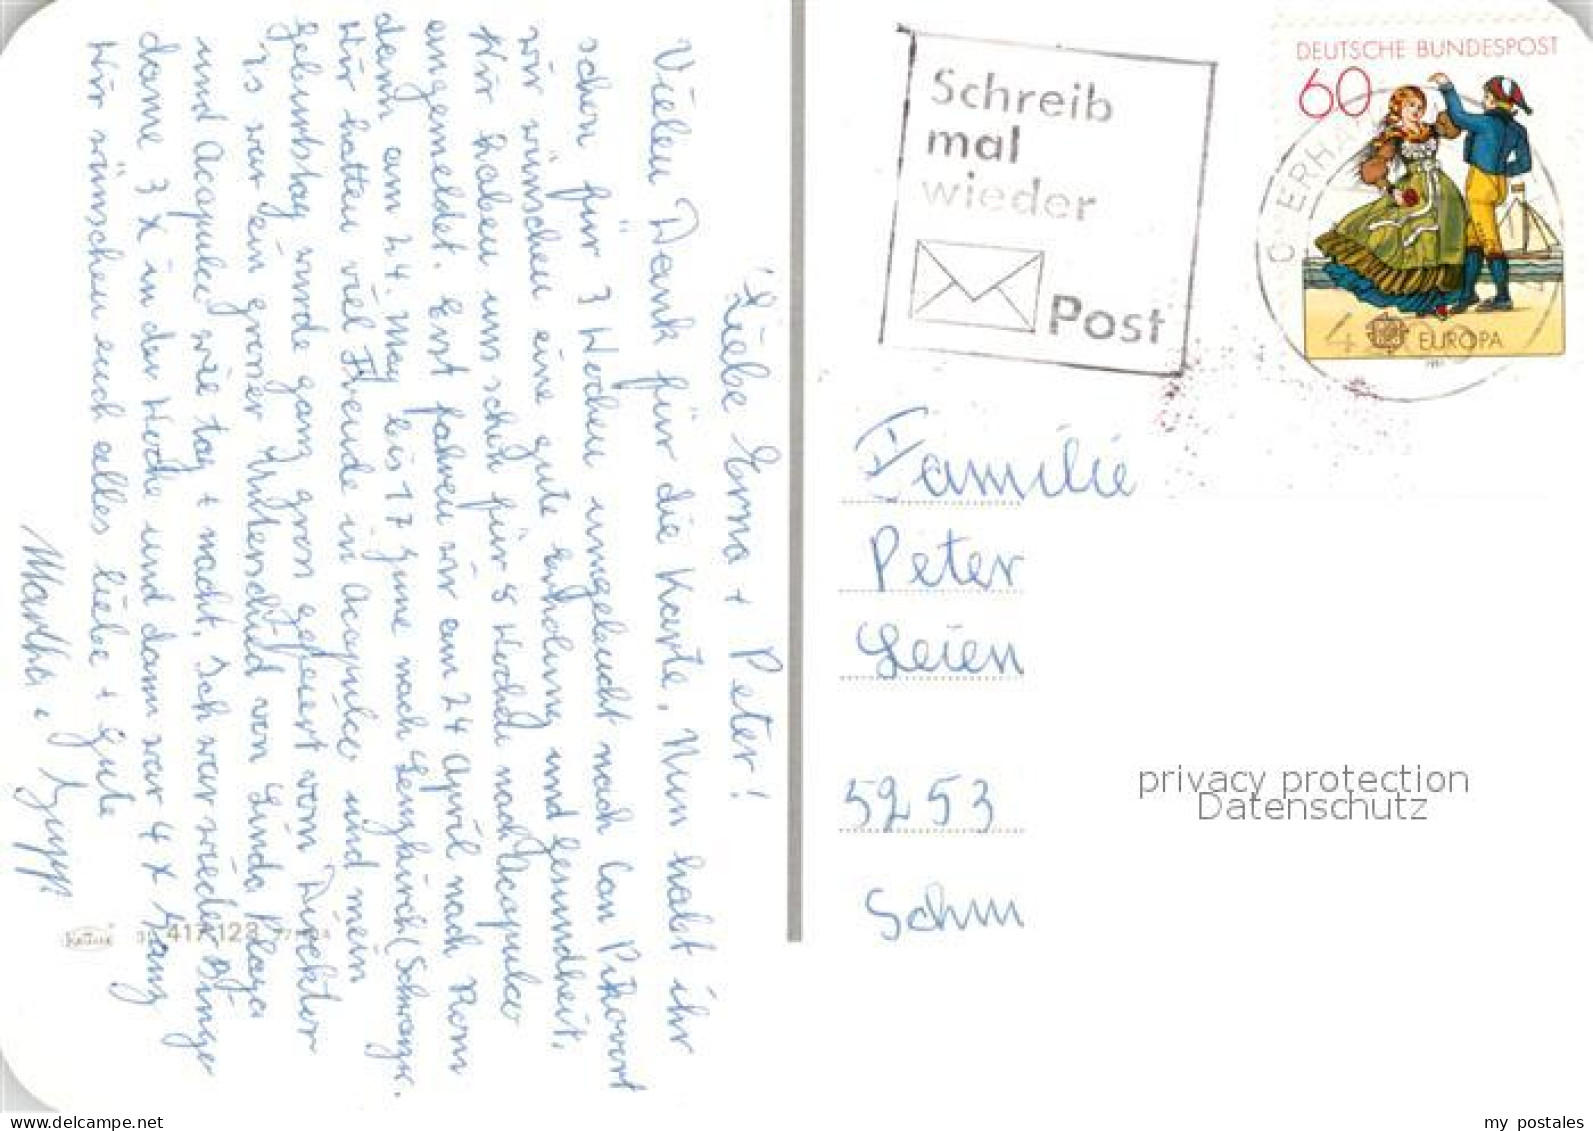 Liebe Erna + Peter!
Vielen Dank für die Karte, Nun habt ihr
schon für 3 Wochen umgebucht nach Can Pikovert
wir wünschen eine gute Erholung und Gesundheit.
Wir haben uns schon für 8 Wochen nach Acapulco
angemeldet. Erst fahren wir am 24 April nach Rom
dann am 24. May bis 17 June nach Lenzkirch (Schwarzw.
Wir hatten viel Freude in Acapulco und mein
Geburtstag wurde ganz gros gefeiert vom Direktor
Es war ein groser Unterschied von Linda Playa
und Acapulco wie tag + nacht. Ich war wieder Bingo
dame 3 X in der Woche und dann war 4 X
Wir wünschen euch alles liebe + Gute
Martha
417.123
Schreib
mal
wieder
Post
DEUTSCHE BUNDESPOST
60
EUROPA
OBERHA
Familie
Peter
Leien
5253
Schm
privacy protection
Datenschutz
my postales